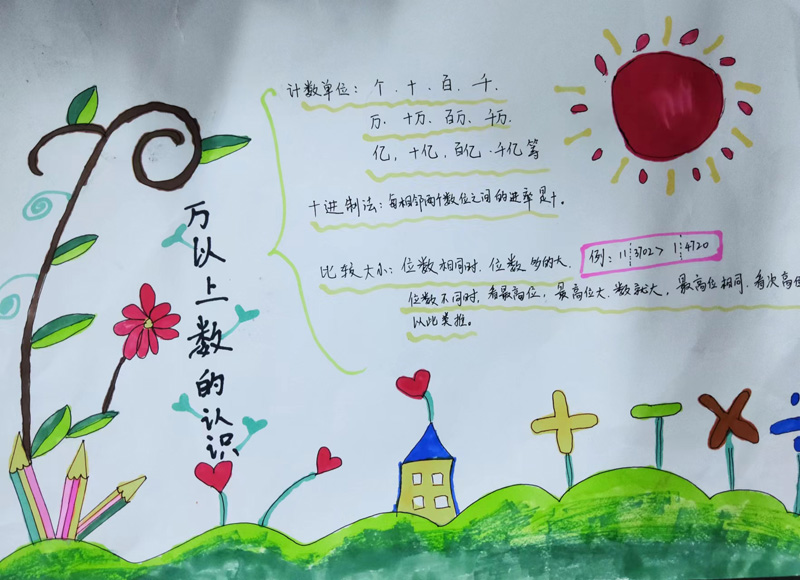 万以上数的认识
计数单位：个、十、百、千、
万、十万、百万、千万、
亿，十亿，百亿、千亿等
十进制法：每相邻两个数位之间的进率是十。
比较大小：位数相同时，位数多的大，
例：11┊3702＞1┊4720
位数不同时，看最高位，最高位大，数就大，最高位相同，看次高位
以此类推。